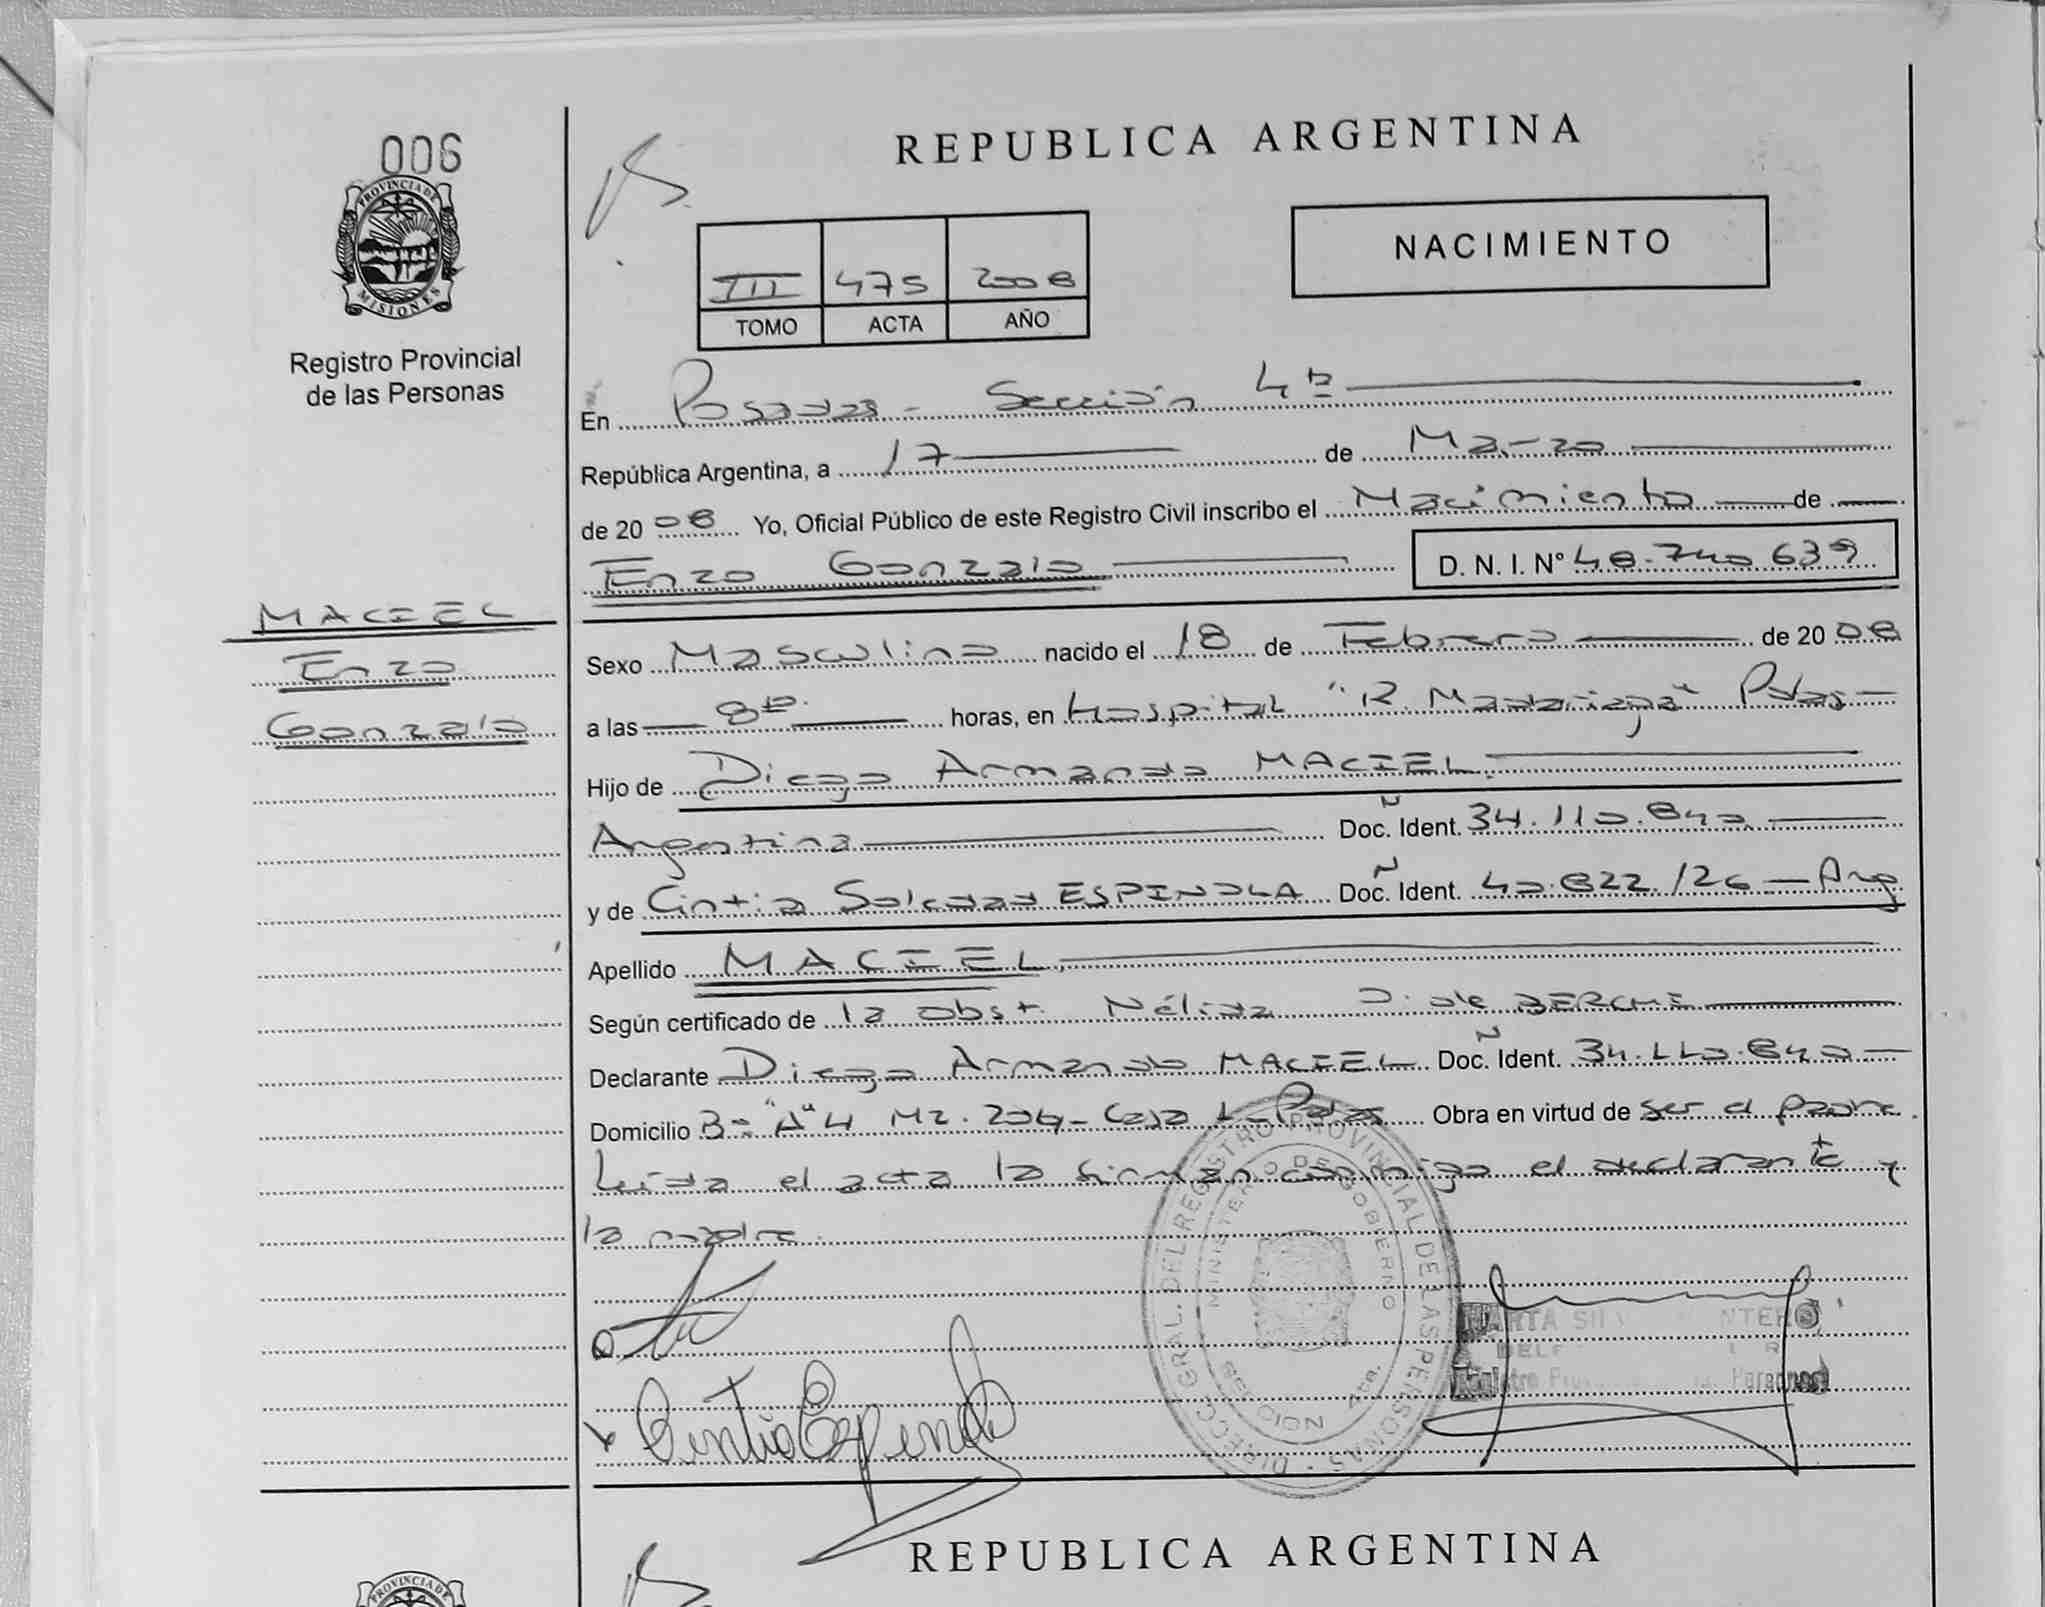 006
PROVINCIA DE
MISIONES
Registro Provincial
de las Personas
MACIEL
Enzo
Gonzalo
REPUBLICA ARGENTINA
NACIMIENTO
III 475 2008
TOMO ACTA AÑO
En Posadas - Sección 4ta
República Argentina, a 17 de Marzo
de 2008 Yo, Oficial Público de este Registro Civil inscribo el Nacimiento de
Enzo Gonzalo D. N. I. N° 48.740.639
Sexo Masculino nacido el 18 de Febrero de 2008
a las 8 horas, en Hospital "R. Madariaga" Pdas
Hijo de Diego Armando MACIEL
Argentina Doc. Ident. 34.110.840
y de Cintia Soledad ESPINDOLA Doc. Ident. 40.822.126 - Arg
Apellido MACIEL
Según certificado de la Obst. Nélida D. de BERCHE
Declarante Diego Armando MACIEL Doc. Ident. 34.110.840
Domicilio B° "A" 4 Mz. 204 - Casa 1 - Pdas Obra en virtud de ser el padre.
Leída el acta la firman conmigo el declarante y
la madre
Cintia Espindola
DIRECC. GRAL. DEL REGISTRO PROVINCIAL DE LAS PERSONAS
MINISTERIO DE GOBIERNO
SECCION 4ta.
REPUBLICA ARGENTINA
PROVINCIA DE